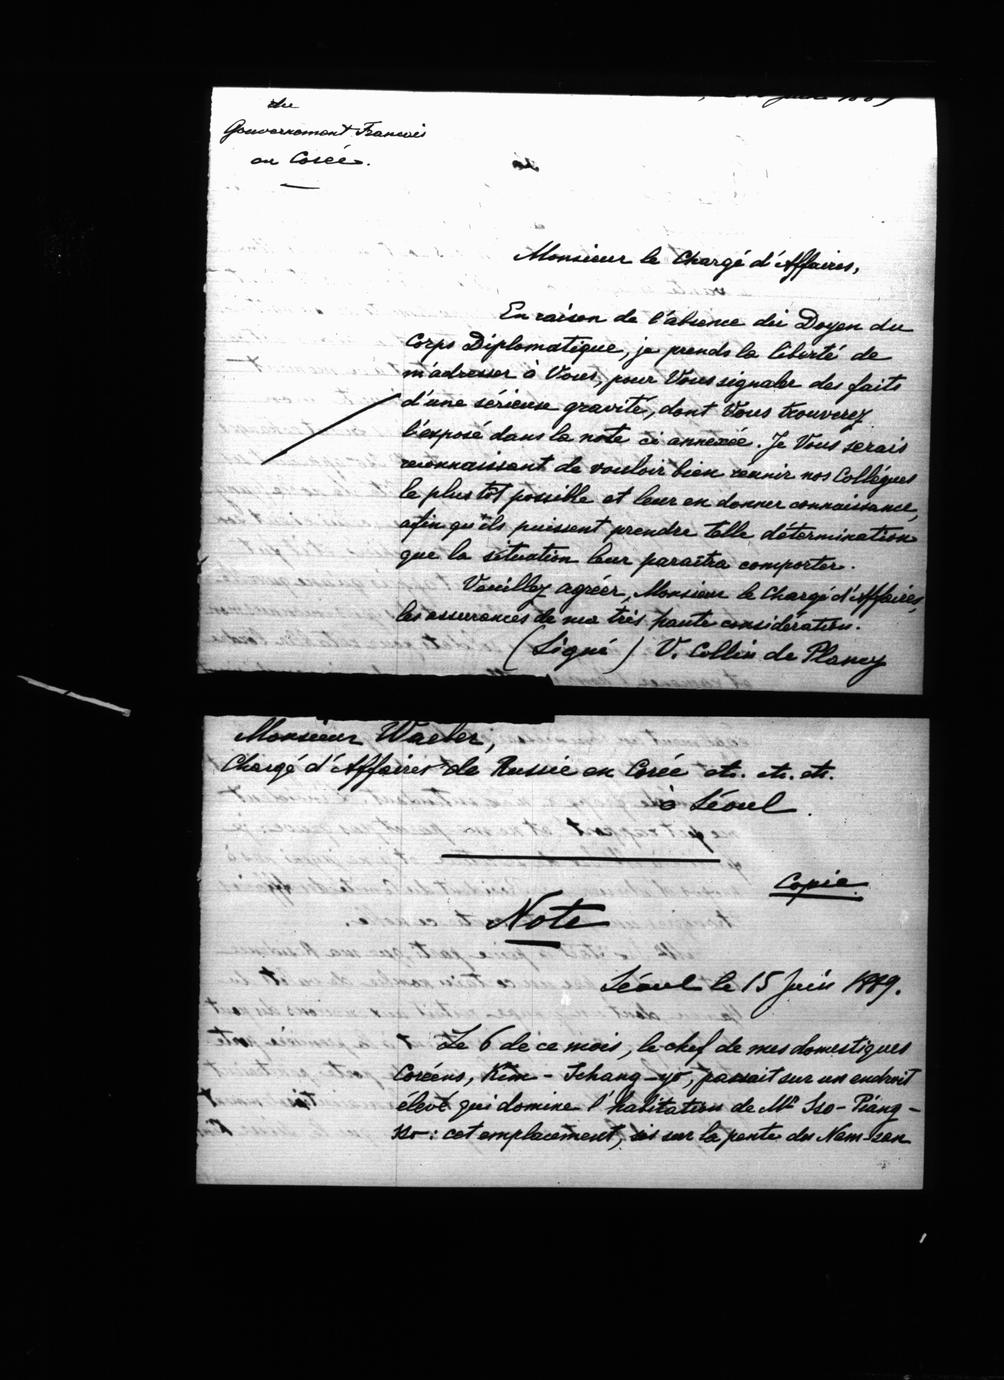 du
Gouvernement Francais
en Corée.
Juin 1889
Monsieur le Chargé d'Affaires,
En raison de l'absence du Doyen du
Corps Diplomatique, je prends la liberté de
m'adresser à Vous, pour Vous signaler des faits
d'une sérieuse gravité, dont Vous trouverez
l'exposé dans la note ci annexée. Je Vous serais
reconnaissant de vouloir bien réunir nos Collègues
le plus tôt possible et leur en donner connaissance,
afin qu'ils puissent prendre telle détermination
que la situation leur paraîtra comporter.
Veuillez agréer, Monsieur le Chargé d'Affaires,
les assurances de ma très haute considération.
(Signé) V. Collin de Plancy
Monsieur Waeber,
Chargé d'Affaires de Russie en Corée etc. etc. etc.
à Séoul.
Copie.
Note
Séoul le 15 Juin 1889.
Le 6 de ce mois, le chef de mes domestiques
Coréens, Kim-Tchang-yo, passait sur un endroit
élevé qui domine l'habitation de Mr Tso-Piäng-
: cet emplacement, sis sur la pente du Nam-san